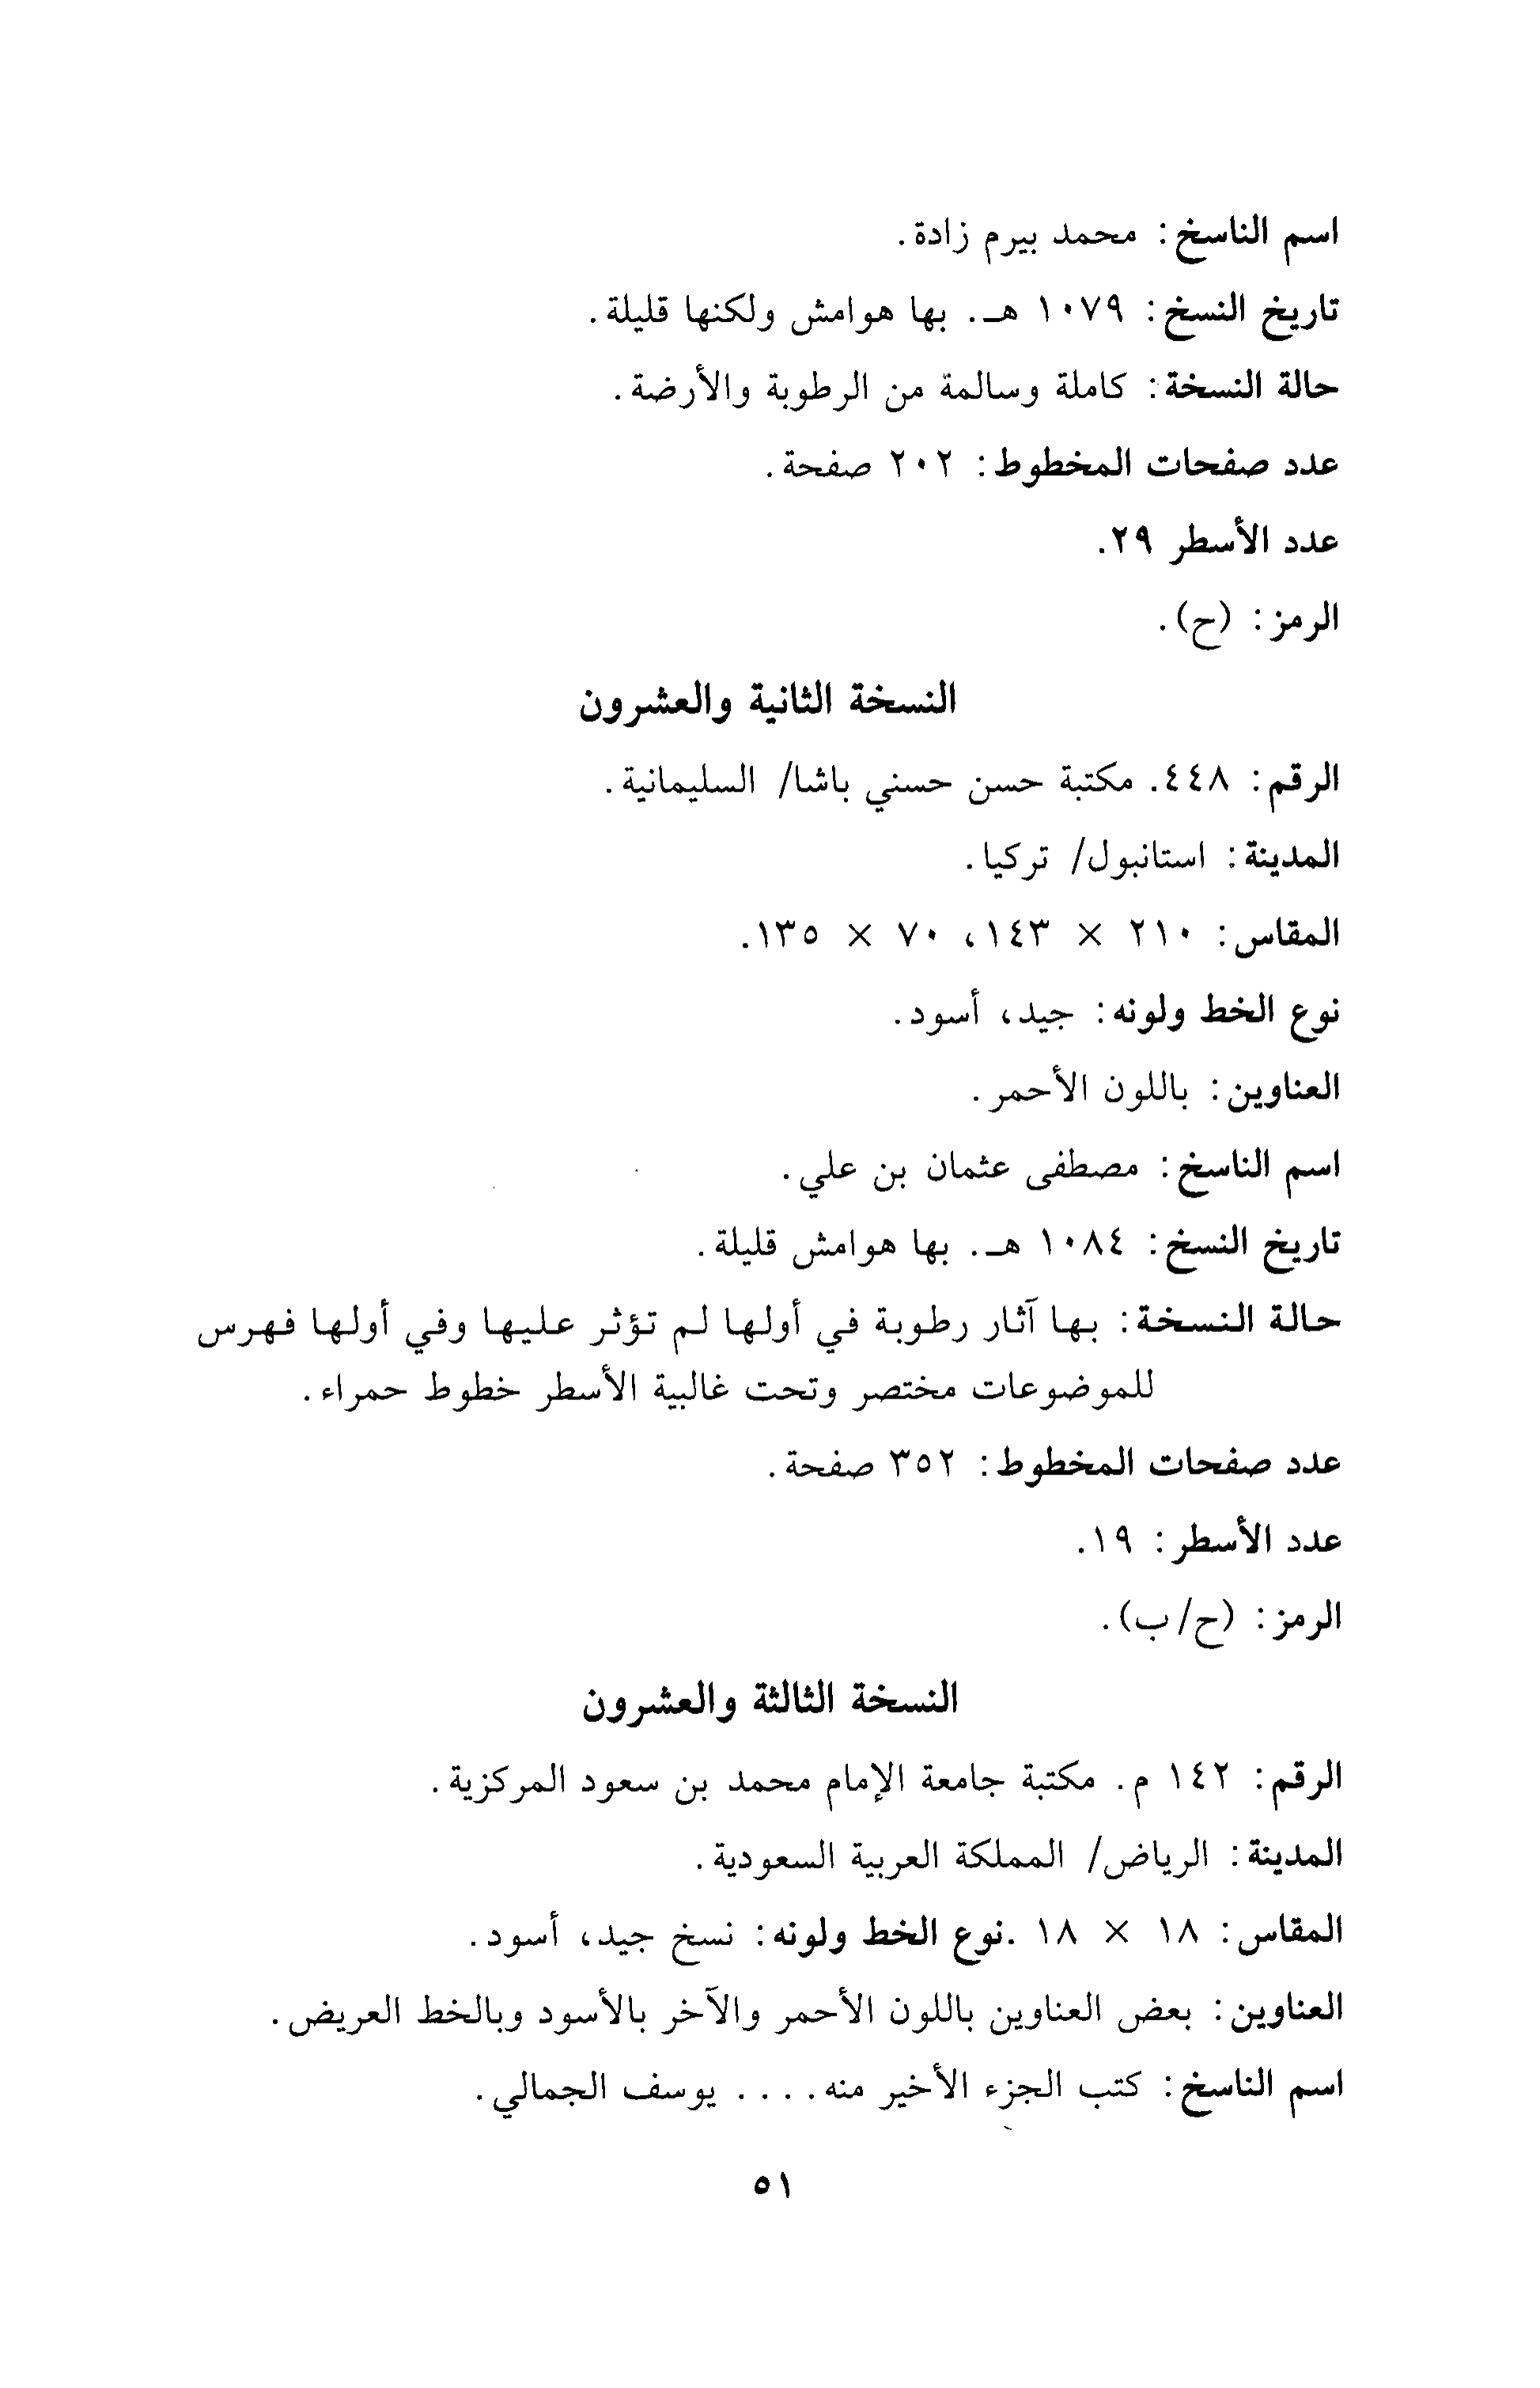 اسم الناسخ: محمد بيرم زادة.
تاريخ النسخ: ١٠٧٩ هـ. بها هوامش ولكنها قليلة.
حالة النسخة: كاملة وسالمة من الرطوبة والأرضة.
عدد صفحات المخطوط: ٢٠٢ صفحة.
عدد الأسطر ٢٩.
الرمز: (ح).
النسخة الثانية والعشرون
الرقم: ٤٤٨. مكتبة حسن حسني باشا/ السليمانية.
المدينة: استانبول/ تركيا.
المقاس: ٢١٠ × ١٤٣، ٧٠ × ١٣٥.
نوع الخط ولونه: جيد، أسود.
العناوين: باللون الأحمر.
اسم الناسخ: مصطفى عثمان بن علي.
تاريخ النسخ: ١٠٨٤ هـ. بها هوامش قليلة.
حالة النسخة: بها آثار رطوبة في أولها لم تؤثر عليها وفي أولها فهرس
للموضوعات مختصر وتحت غالبية الأسطر خطوط حمراء.
عدد صفحات المخطوط: ٣٥٢ صفحة.
عدد الأسطر: ١٩.
الرمز: (ح/ب).
النسخة الثالثة والعشرون
الرقم: ١٤٢ م. مكتبة جامعة الإمام محمد بن سعود المركزية.
المدينة: الرياض/ المملكة العربية السعودية.
المقاس: ١٨ × ١٨ .نوع الخط ولونه: نسخ جيد، أسود.
العناوين: بعض العناوين باللون الأحمر والآخر بالأسود وبالخط العريض.
اسم الناسخ: كتب الجزء الأخير منه.... يوسف الجمالي.
٥١